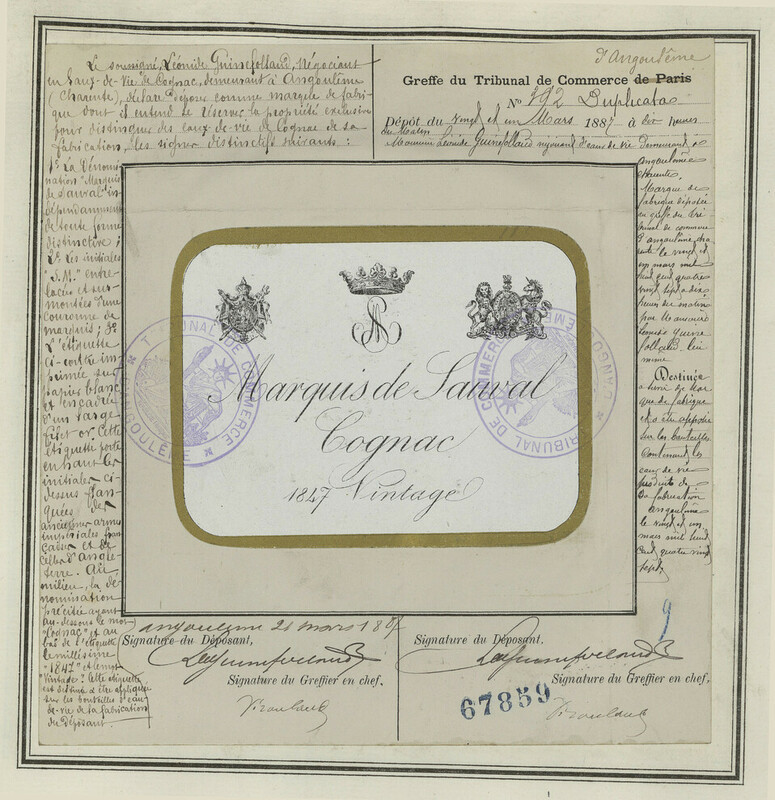 Le soussigné, Léonide Guinefolleaud, Négociant
en Eaux-de-Vie de Cognac, demeurant à Angoulême
(Charente), déclare déposer comme marque de fabri-
que dont il entend se réserver la propriété exclusive
pour distinguer des eaux-de-vie de Cognac de sa
fabrication, les signes distinctifs suivants :
1º La Dénomi-
nation "Marquis
de Sauval" in-
dépendamment
de toute forme
distinctive ;
2º Les initiales
"S.M." entre-
lacées et sur-
montées d'une
couronne de
marquis ; 3º
L'étiquette
ci-contre im-
primée sur
papier blanc
et encadrée
d'un large
filet or. Cette
étiquette porte
en haut les
initiales ci-
dessus flan-
quées des
anciennes armes
impériales fran-
çaises et de
celles d'Angle-
terre. Au
milieu, la dé-
nomination
précitée ayant
au-dessous le mot
"Cognac" et au
bas de l'étiquette
le millésime
"1847" et le mot
"Vintage". Cette étiquette
est destinée à être appliquée
sur les bouteilles d'eau-
de-vie de la fabrication
du déposant.
d'Angoulême
Greffe du Tribunal de Commerce de Paris
Nº 792 Duplicata
Dépôt du vingt et un Mars 1887 à dix heures
du matin
Monsieur Léonide Guinefolleaud négociant d'eaux de vie demeurant à
Angoulême
Charente
Marque de
fabrique déposée
au greffe du Tri
bunal de commerce
d'Angoulême
le vingt et
un mars mil
huit cent quatre
vingt sept à dix
heures du matin
par Monsieur
Léonide Guine
folleaud lui
même
Destinée
à servir de mar
que de fabrique
et à être apposée
sur les bouteilles
contenant les
eaux de vie
produits de
sa fabrication
Angoulême
le vingt et un
mars mil huit
cent quatre vingt
sept
SM
Marquis de Sauval
Cognac
1847 Vintage
TRIBUNAL DE COMMERCE
ANGOULÊME
TRIBUNAL DE COMMERCE
ANGOULÊME
Angoulême 21 mars 1887
Signature du Déposant,
Signature du Greffier en chef.
9
Signature du Déposant.
Signature du Greffier en chef.
67859